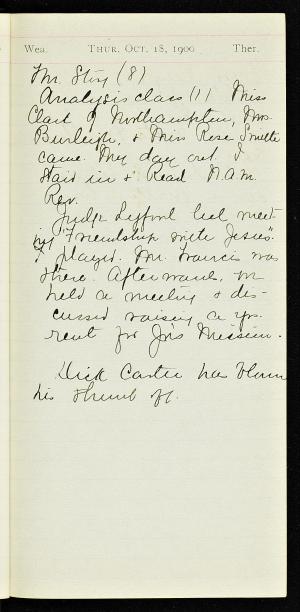 Wea. THUR. OCT. 18, 1900 Ther.
Mr Story (8)
Analysis class (1) Miss
Clart of Northampton, Mrs
Burleigh, & Miss Rose Smith
came. My day out. I
staid in & Read N. A. M.
Rev.
Judge led meet-
ing "Friendship with Jesus".
I played. Mr. Francis was
there. Afterward, we
held a meeting & dis-
cussed raising a yrs.
rent for Jo's Mission.
Dick Carter has blown
his thumb off.